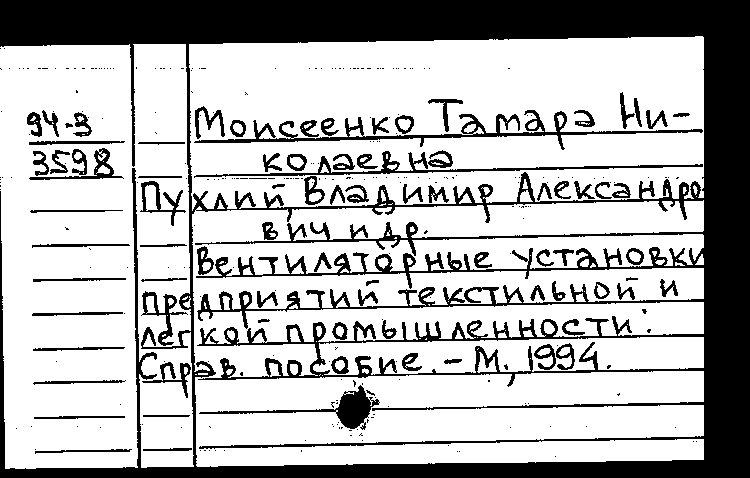 94-3
3598
Моисеенко, Тамара Ни-
колаевна
Пухлий, Владимир Александро
вич и др.
Вентиляторные установки
предприятий текстильной и
легкой промышленности:
Справ. пособие. - М., 1994.